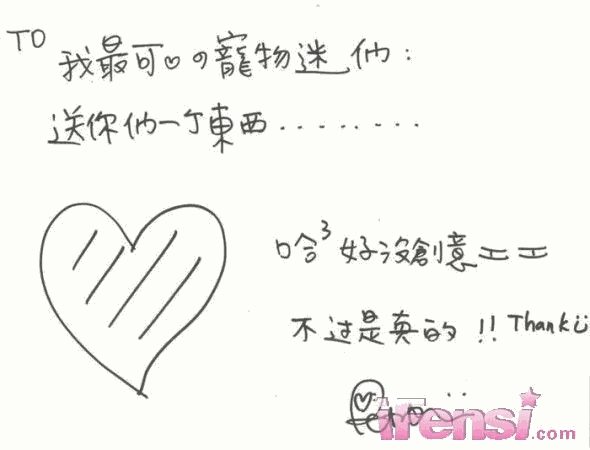 TO
我最可♡的寵物迷他们:
送你他一个東西........
哈³ 好沒創意==
不过是真的!! Thank ü
iFensi.com